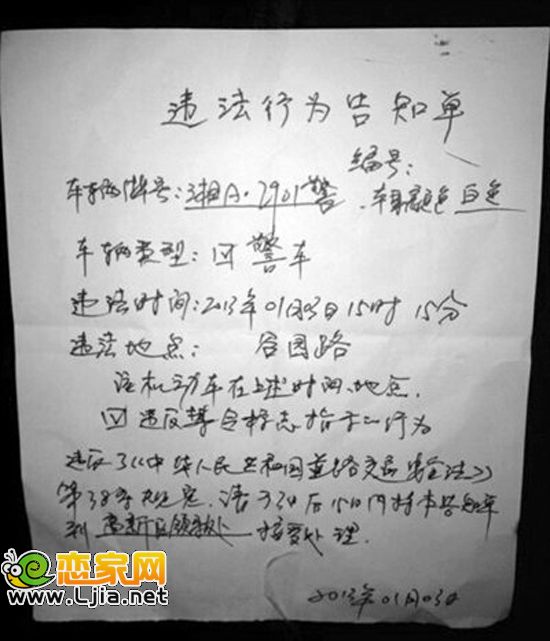 违法行为告知单
编号:
车辆牌号:湘A·2901警.车身颜色 白色
车辆类型:☑警车
违法时间:2013年01月03日15时15分
违法地点: 谷园路
该机动车在上述时间、地点,
☑违反禁令标志指示的行为
违反了《中华人民共和国道路交通安全法》
第38条规定.请于3日后15日内持本告知单
到 接受处理.
2013年01月03日
恋家网
www.Ljia.net